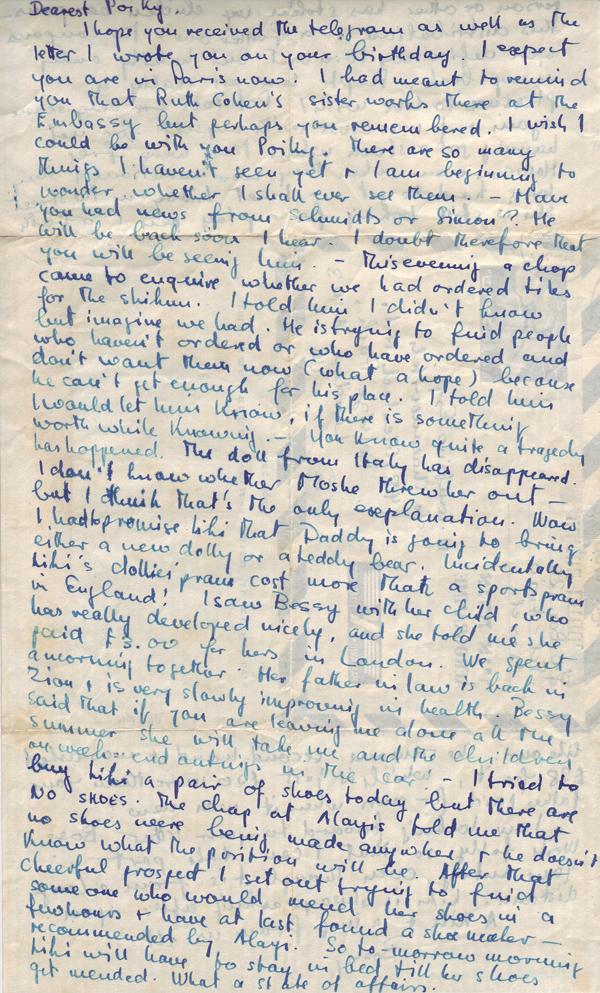 Dearest Poiky.
I hope you received the telegram as well as the
letter I wrote you on your birthday. I expect
you are in Paris now. I had meant to remind
you that Ruth Cohen's sister works there at the
Embassy but perhaps you remembered. I wish I
could be with you Poiky. There are so many
things I haven't seen yet + I am beginning to
wonder whether I shall ever see them. – Have
you had news from Schmidts or Simon? He
will be back soon I hear. I doubt therefore that
you will be seeing him. – This evening a chap
came to enquire whether we had ordered tiles
for the shikun. I told him I didn't know
but imagine we had. He is trying to find people
who haven't ordered or who have ordered and
don't want them now (what a hope) because
he can't get enough for his place. I told him
I would let him know, if there is something
worth while knowing. – You know quite a tragedy
has happened. The doll from Italy has disappeared.
I don't know whether Moshe threw her out –
but I think that's the only explanation. Now
I had to promise Kiki that Daddy is going to bring
either a new dolly or a teddy bear. Incidentally
Kiki's dollies' pram cost more than a sports pram
in England! I saw Bessy with her child, who
has really developed nicely, and she told me she
paid £5.00 for hers in London. We spent
a morning together. Her father in law is back in
Zion + is very slowly improving in health. Bessy
said that if you are leaving me alone all the
summer she will take me and the children
on week-end outings in the car. – I tried to
buy Kiki a pair of shoes today but there are
no shoes. The chap at Alayis told me that
no shoes were being made anywhere + he doesn't
know what the position will be. After that
cheerful prospect I set out trying to find
someone who would mend her shoes in a
few hours + have at last found a shoemaker –
recommended by Alayi. So to-morrow morning
Kiki will have to stay in bed till her shoes
get mended. What a state of affairs.